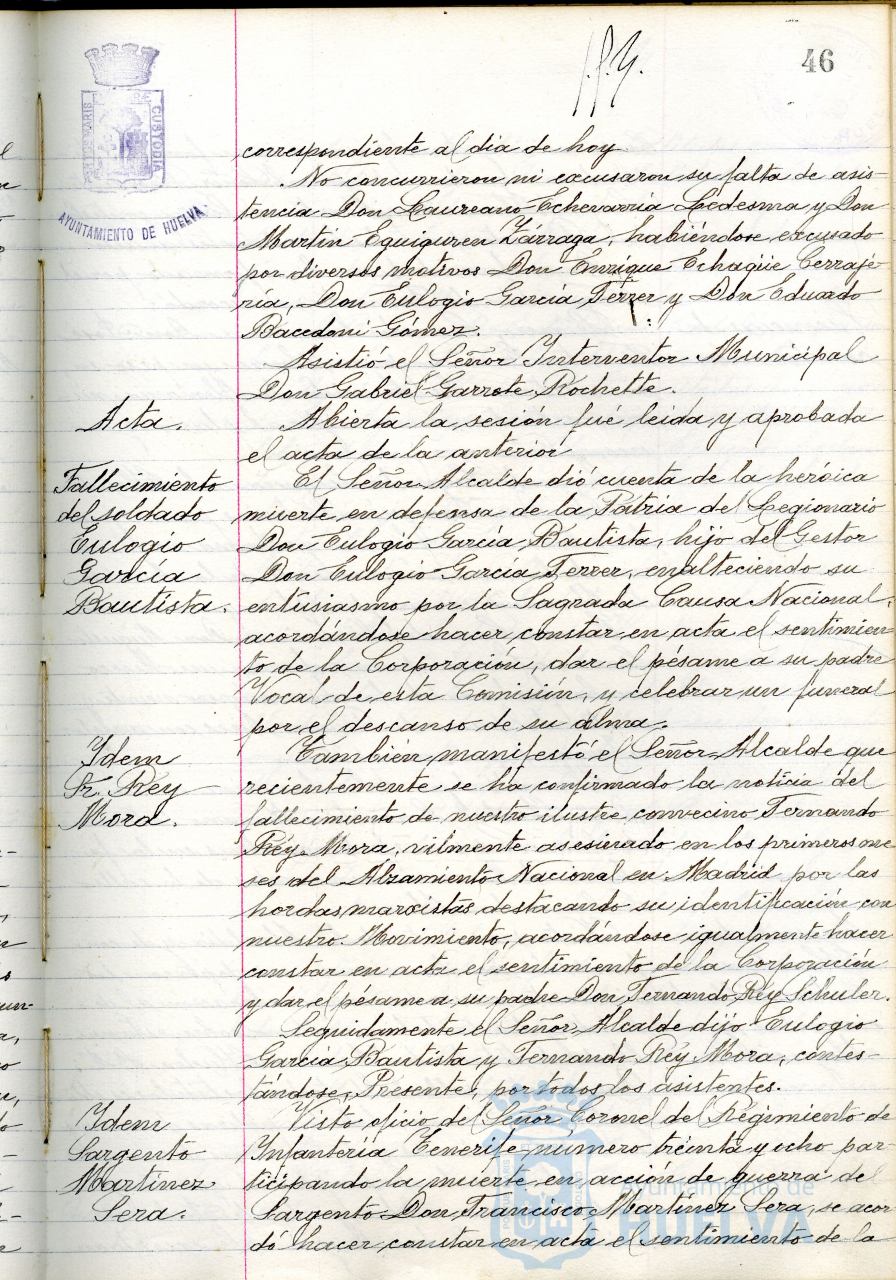 46
PORTUS MARIS
CUSTODIA
AYUNTAMIENTO DE HUELVA
correspondiente al dia de hoy.
No concurrieron ni excusaron su falta de asis-
tencia Don Laureano Echevarría Ledesma y Don
Martín Eguiguren Zárraga, habiéndose excusado
por diversos motivos Don Enrique Echagüe Cerraje-
ría, Don Eulogio García Ferrer y Don Eduardo
Bacedoni Gómez.
Asistió el Señor Interventor Municipal
Don Gabriel Garrote Rochette.
Acta.
Abierta la sesión fué leida y aprobada
el acta de la anterior
Fallecimiento
del soldado
Eulogio
García
Bautista.
El Señor Alcalde dió cuenta de la heróica
muerte en defensa de la Pátria del Legionario
Don Eulogio García Bautista, hijo del Gestor
Don Eulogio Garcia Ferrer, enalteciendo su
entusiasmo por la Sagrada Causa Nacional,
acordándose hacer constar en acta el sentimien
to de la Corporación, dar el pésame a su padre
Vocal de esta Comisión, y celebrar un funeral
por el descanso de su alma.
Idem
Sr. Rey
Mora.
También manifestó el Señor Alcalde que
recientemente se ha confirmado la noticia del
fallecimiento de nuestro ilustre convecino Fernando
Rey Mora, vilmente asesinado en los primeros me
ses del Alzamiento Nacional en Madrid por las
hordas marxistas destacando su identificación con
nuestro Movimiento, acordándose igualmente hacer
constar en acta el sentimiento de la Corporación
y dar el pésame a su padre Don Fernando Rey Schuler.
Seguidamente el Señor Alcalde dijo Eulogio
Garcia Bautista y Fernando Rey Mora, contes-
tándose, Presente, por todos los asistentes.
Idem
Sargento
Martínez
Sera.
Visto oficio del Señor Coronel del Regimiento de
Infantería Tenerife número treinta y ocho par-
ticipando la muerte en acción de guerra del
Sargento Don Francisco Martínez Sera, se acor
dó hacer constar en acta el sentimiento de la
Ayuntamiento de
HUELVA